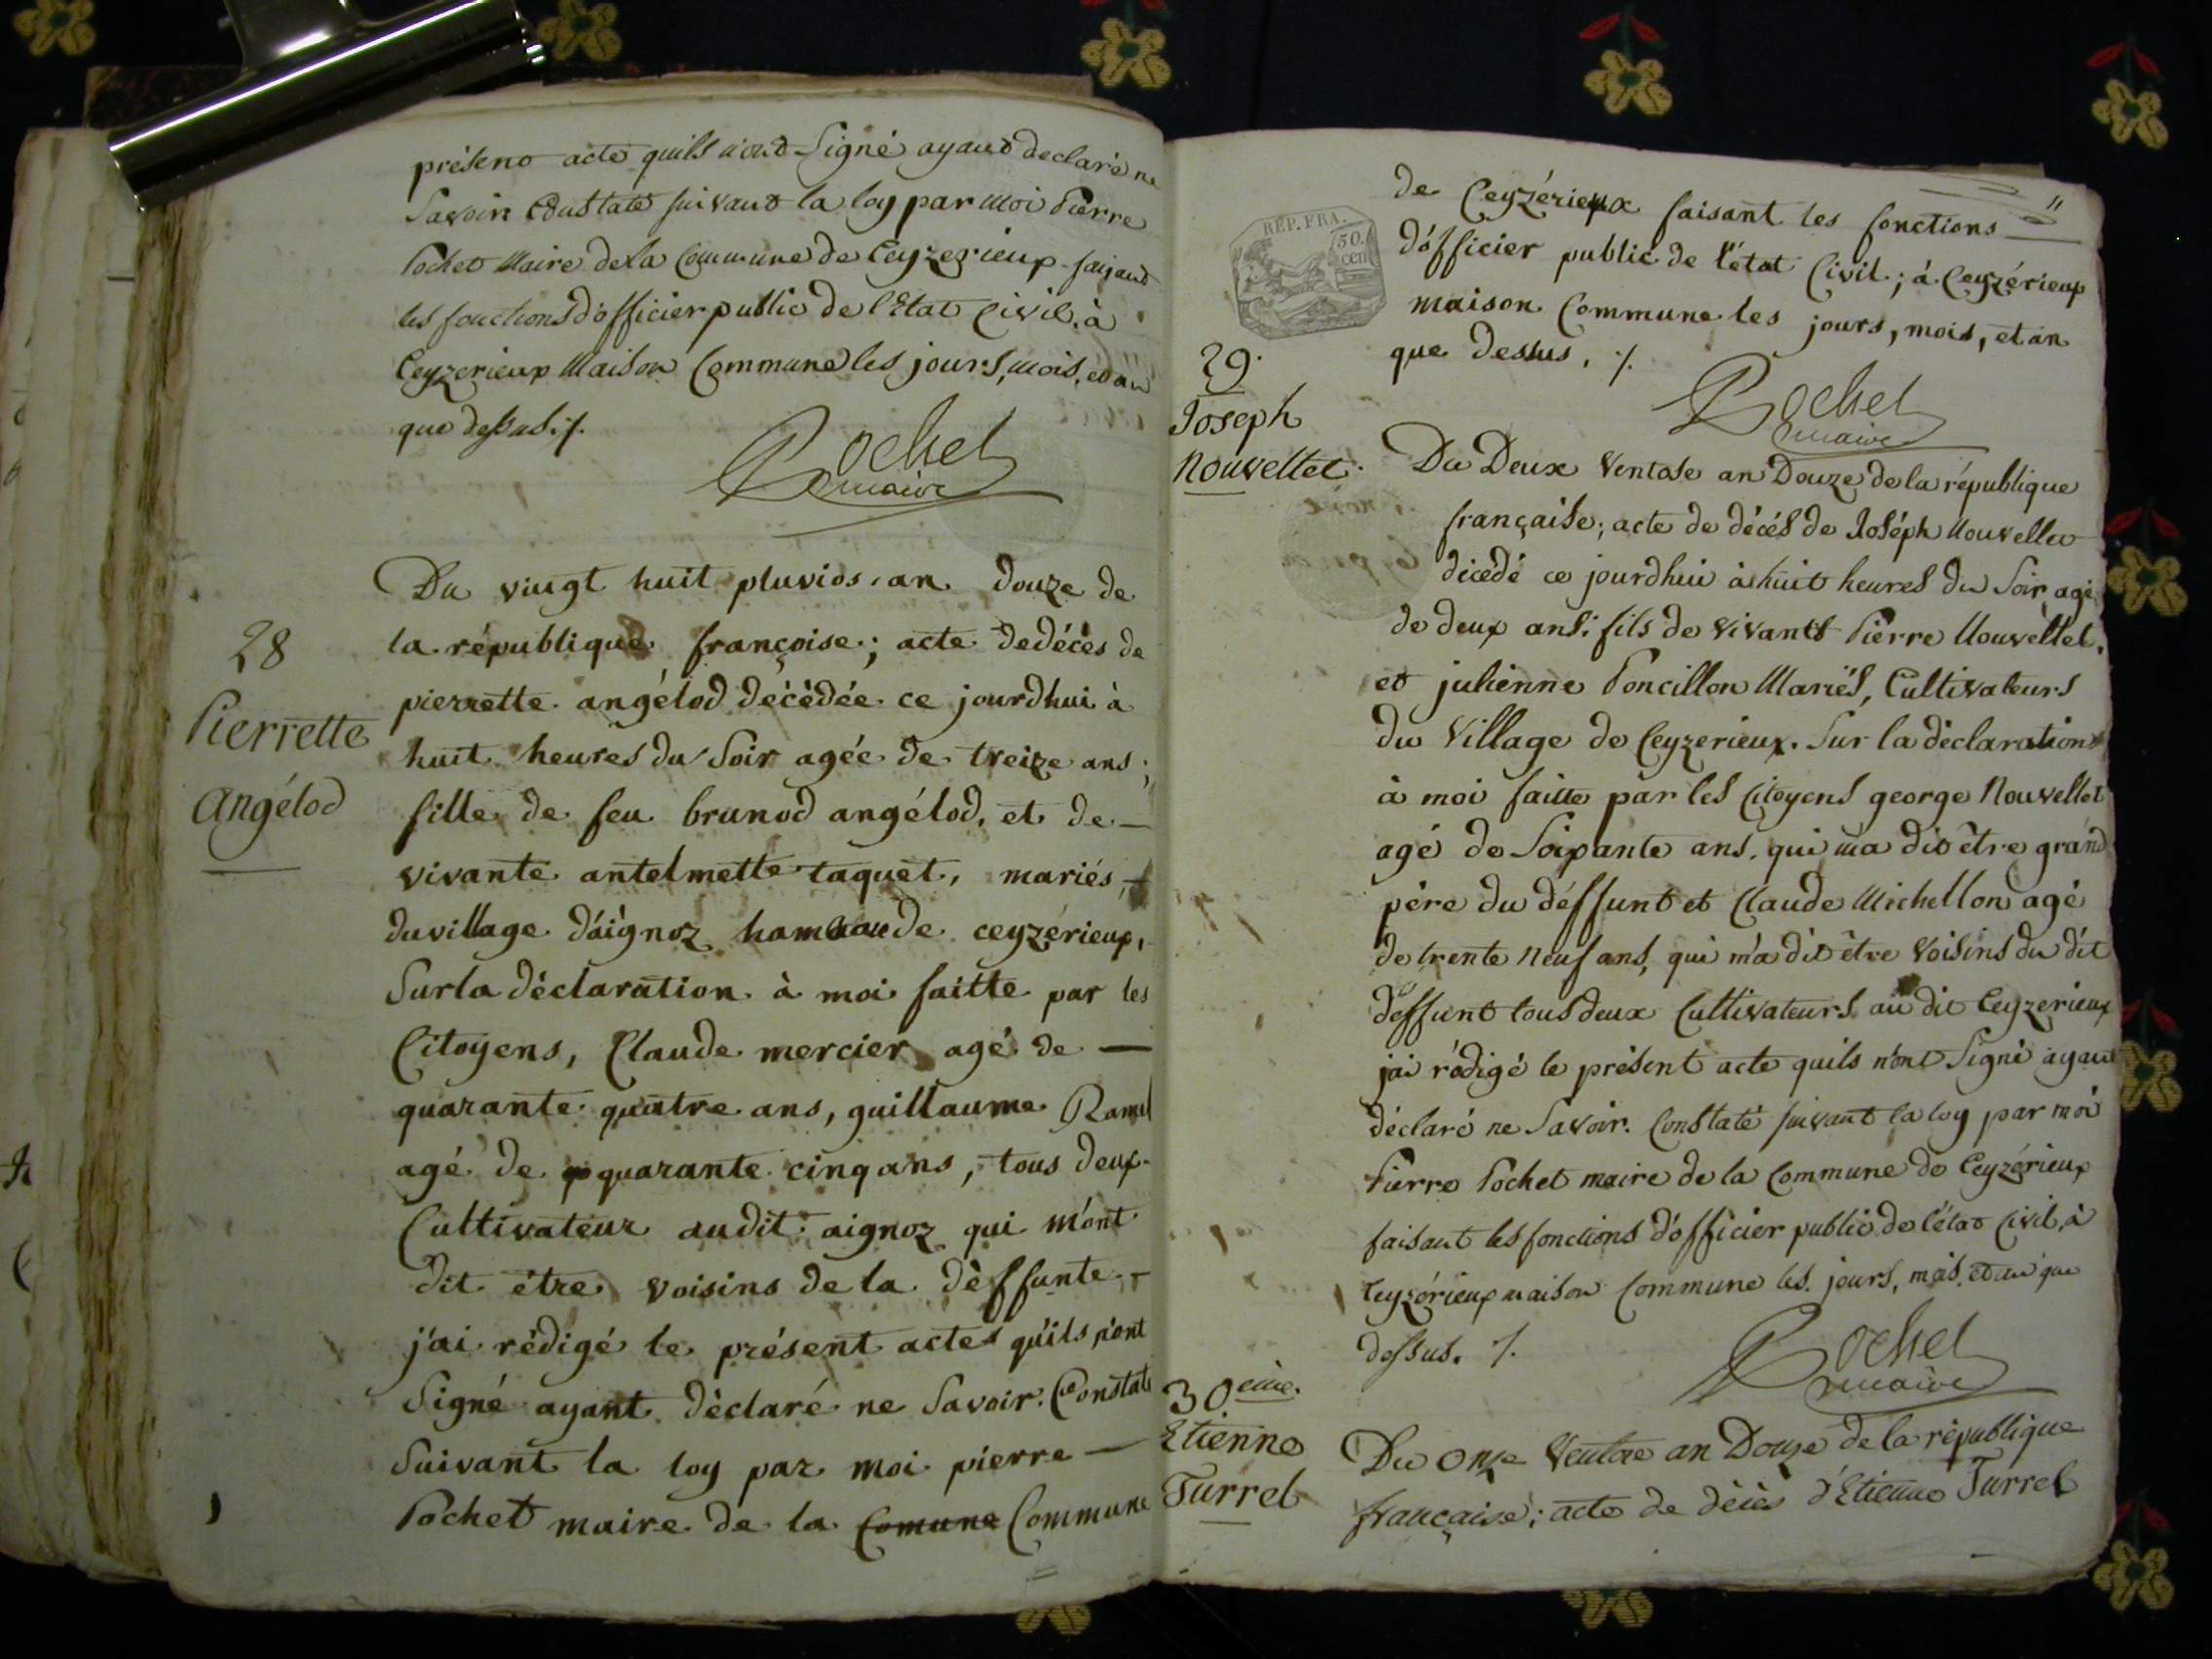 présent acte quils n'ont Signé ayant declaré ne
Savoir Constaté suivant la loy par moi Pierre
Pochet Maire de la Commune de Ceyzerieux faisant
les fonctions d'officier public de l'Etat Civil, à
Ceyzerieux Maison Commune les jours, mois, et an
que dessus ./.
Pochet
maire
28
Pierrette
Angélod
Du vingt huit pluvios. an douze de
la république françoise; acte de décès de
pierrette angélod décèdée ce jourdhui à
huit heures du Soir agée de treize ans;
fille de feu brunod angélod, et de
vivante antelmette taquet, mariés,
du village d'aignoz hameau de ceyzérieux,
Sur la déclaration à moi faitte par les
Citoyens, Claude mercier agé de
quarante quatre ans, guillaume Ramel
agé de quarante cinq ans, tous deux
Cultivateur audit aignoz qui m'ont
dit être voisins de la dèffunte
j'ai rédigé le présent actes qu'ils n'ont
Signé ayant dèclaré ne Savoir. Constaté
Suivant la loy par moi pierre
Pochet maire de la Comune Commune
11
RÉP. FRA.
50.
cen
de Ceyzérieux faisant les fonctions
d'officier public de l'état Civil; à Ceyzérieux
maison Commune les jours, mois, et an
que dessus. ./.
Pochet
maire
29.
Joseph
Nouvellet.
Du Deux Ventose an Douze de la république
française; acte de décès de Joséph Nouvellet
décédé ce jourdhui à huit heures du Soir, agé
de deux ans: fils de vivants Pierre Nouvellet,
et julienne Poncillon Mariés, Cultivateurs
du Village de Ceyzerieux. Sur la déclaration
à moi faitte par les Citoyens george Nouvellet
agé de Soixante ans, qui m'a dit être grand
père du déffunt et Claude Michellon agé
de trente neuf ans, qui m'a dit être Voisins du dit
déffunt tous deux Cultivateurs au dit Ceyzerieux
jai rédigé le présent acte quils n'ont Signé ayant
déclaré ne Savoir. Constaté suivant la loy par moi
Pierre Pochet maire de la Commune de Ceyzérieux
faisant les fonctions d'officier public de l'état Civil, à
Ceyzérieux maison Commune les jours, mois, et an que
dessus. ./.
Pochet
maire
30eme.
Etienne
Turrel
Du Onze Ventose an Douze de la république
française; acte de décès d'Etienne Turrel